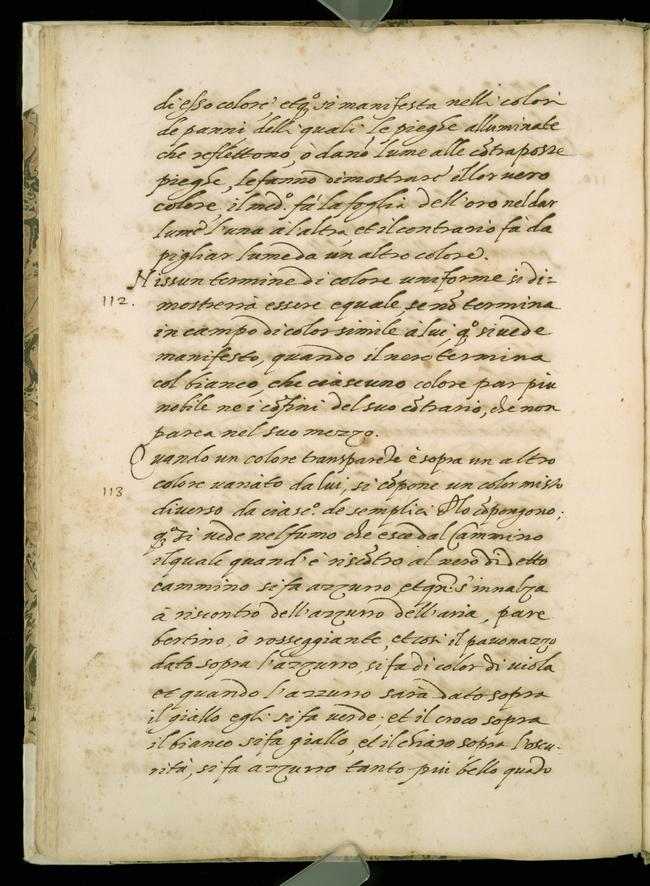 di esso colore et q̃o si manifesta nelli colori
de panni delli quali le pieghe alluminate
che reflettono, ò danõ lume alle cõtraposte
pieghe, le fanno dimostrare il lor vero
colore, il med.º fà la foglia dell'oro nel dar
lume l'una à l'altra et il contrario fà da
pigliar lume da un altro colore.
Nissun termine di colore uniforme si di=
112. mostrerrà essere equale, se nõ termina
in campo di color simile à lui, q̃o si uede
manifesto, quando il nero termina
col bianco, che ciascuno colore par piu
nobile ne i cõfini del suo cõtrario, che non
parea nel suo mezzo.
Quando un colore transparẽte è sopra un altro
113 colore variato da lui, si cõpone un color misto
diverso da ciasc.º de semplici ch̃ lo cõpongono;
q̃o si vede nel fumo che esce dal Cammino
il quale quand'è riscõtro al nero di detto
cammino si fa azzurro, et qñ s'innalza
à riscontro dell'azzurro dell'aria, pare
bertino, ò rosseggiante, et cosi il pavonazzo
dato sopra l'azzurro, si fa di color di viola
et quando l'azzurro sarà dato sopra
il giallo egli si fa verde. et il croco sopra
il bianco si fa giallo, et il chiaro sopra l'oscu-
rità, si fa azzurro tanto piu bello quãdo